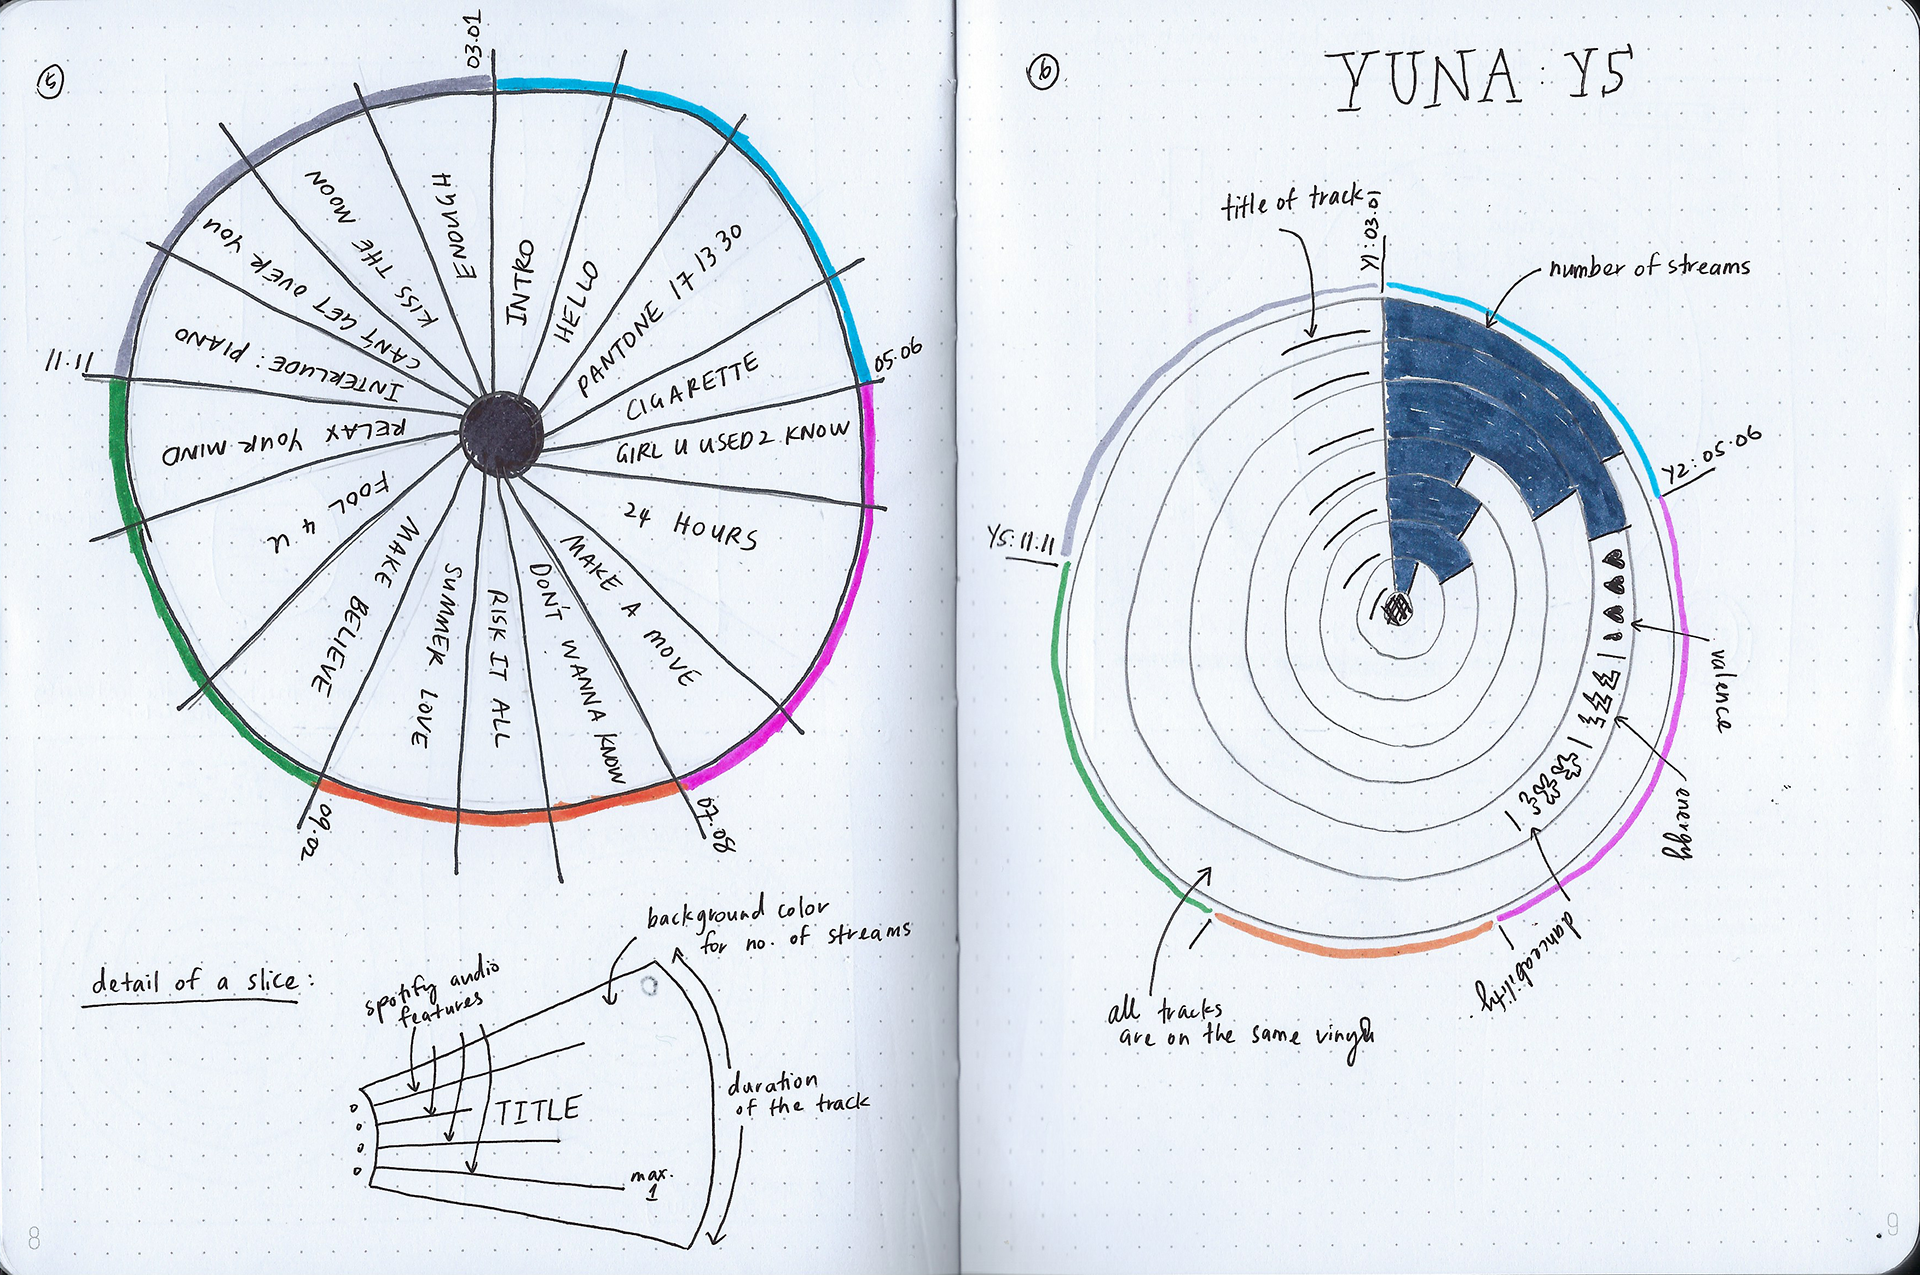 5
03.01
INTRO
HELLO
PANTONE 17 13 30
CIGARETTE
05.06
GIRL U USED 2 KNOW
24 HOURS
MAKE A MOVE
07.08
DON'T WANNA KNOW
RISK IT ALL
SUMMER LOVE
09.02
MAKE BELIEVE
FOOL 4 U
RELAX YOUR MIND
11.11
INTERLUDE: PIANO
CAN'T GET OVER YOU
KISS THE MOON
ENOUGH
detail of a slice:
spotify audio
features
background color
for no. of streams
TITLE
max.
1
duration
of the track
8
6
YUNA : Y5
title of track
Y1:03.01
number of streams
Y2:05.06
Y5:11.11
valence
energy
danceability
all tracks
are on the same vinyl
9